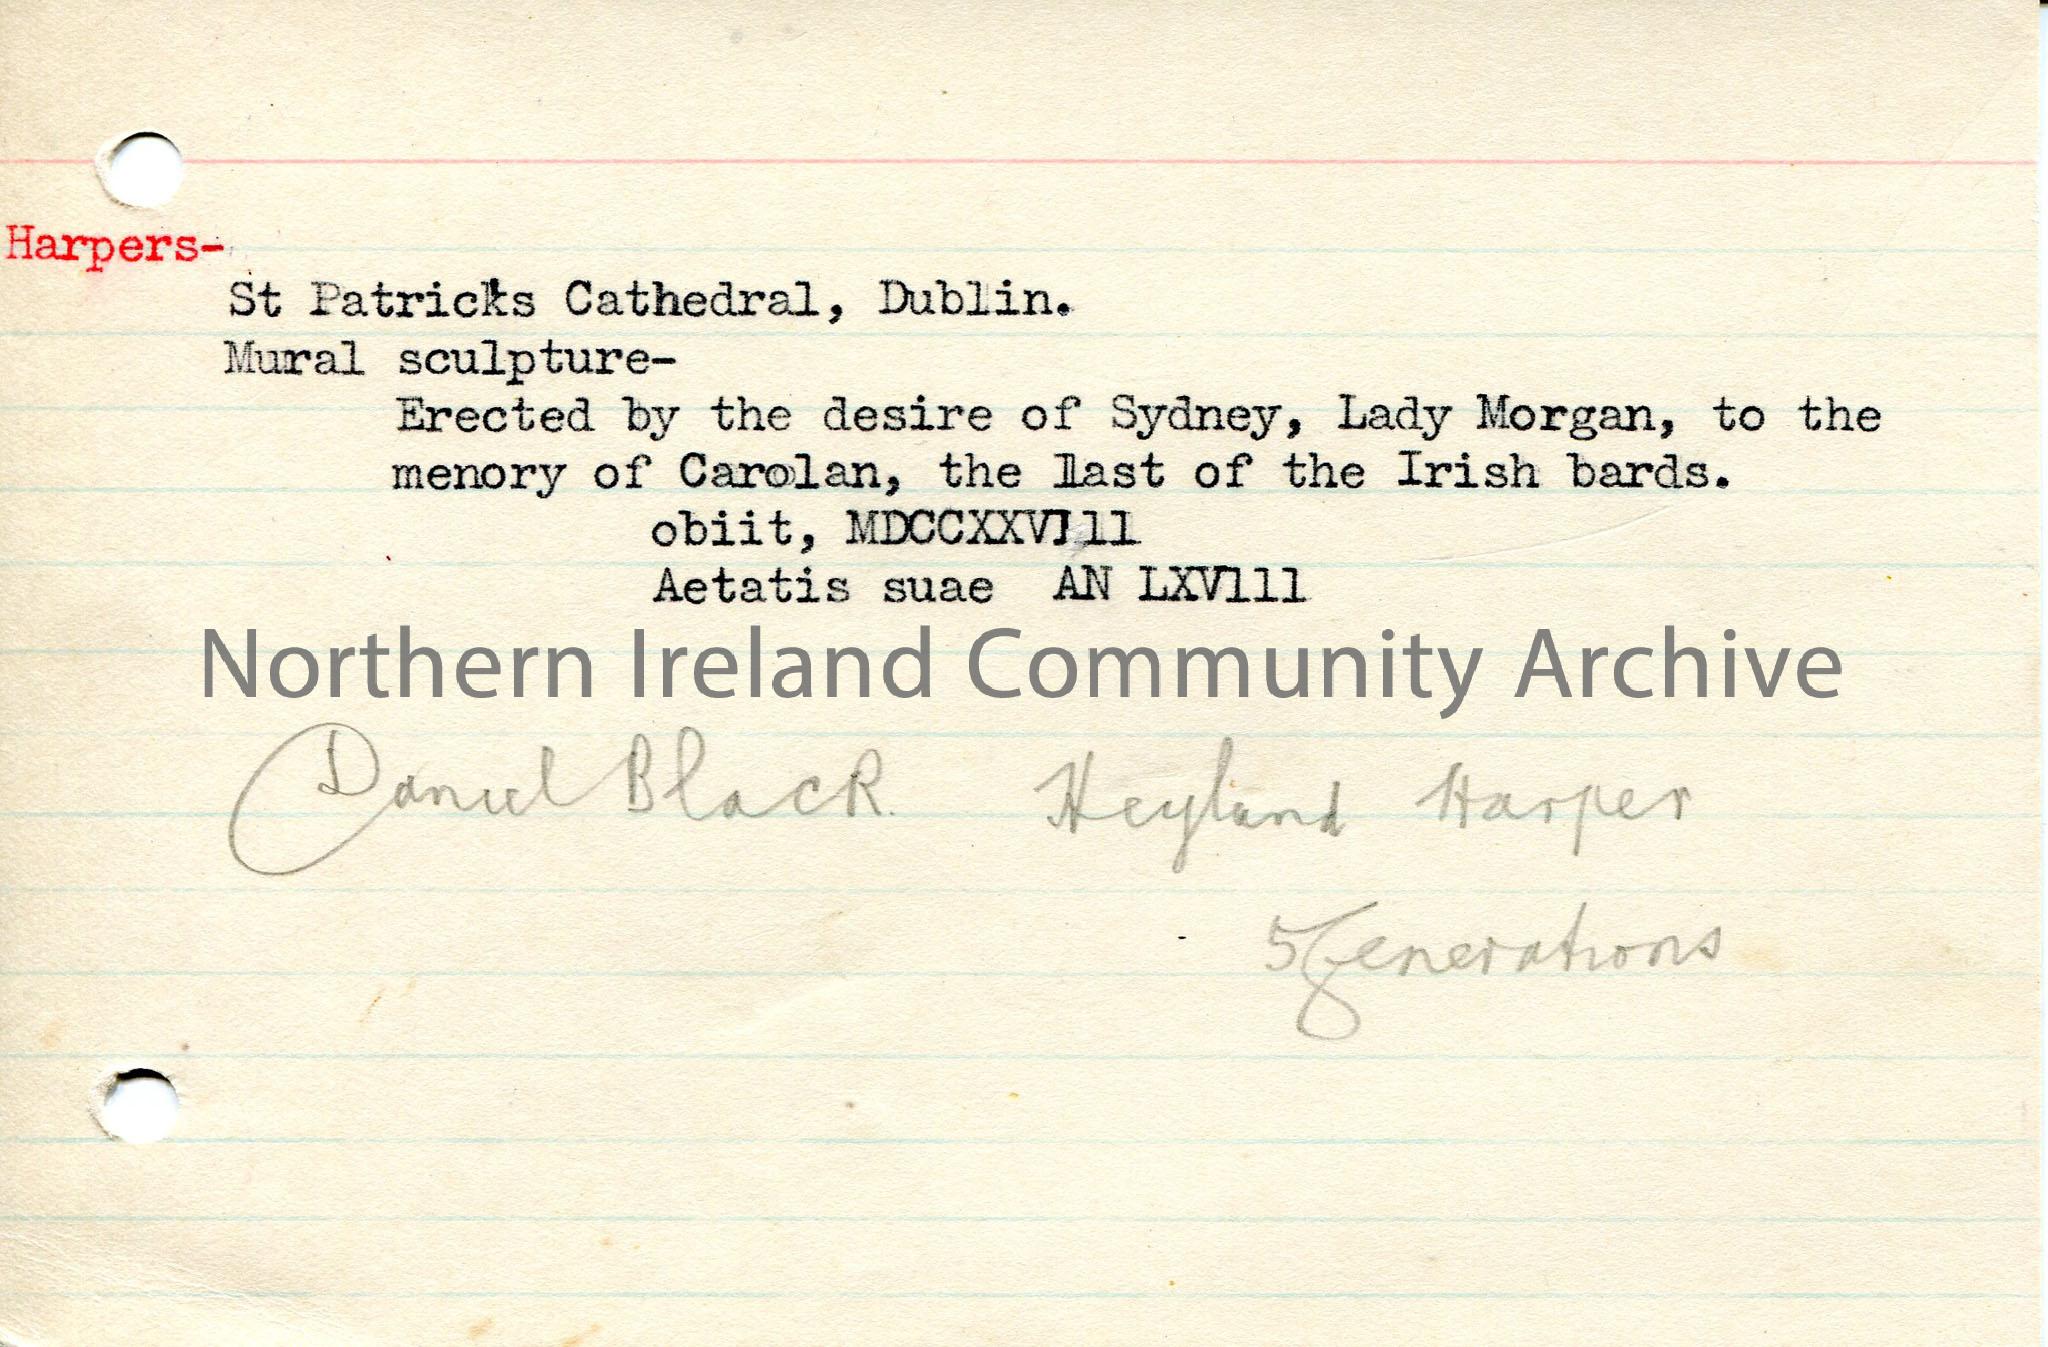 Harpers-
St Patricks Cathedral, Dublin.
Mural sculpture-
Erected by the desire of Sydney, Lady Morgan, to the
menory of Carolan, the last of the Irish bards.
obiit, MDCCXXVIll
Aetatis suae AN LXVlll
Northern Ireland Community Archive
Daniel Black. Heyland Harper
5 Generations